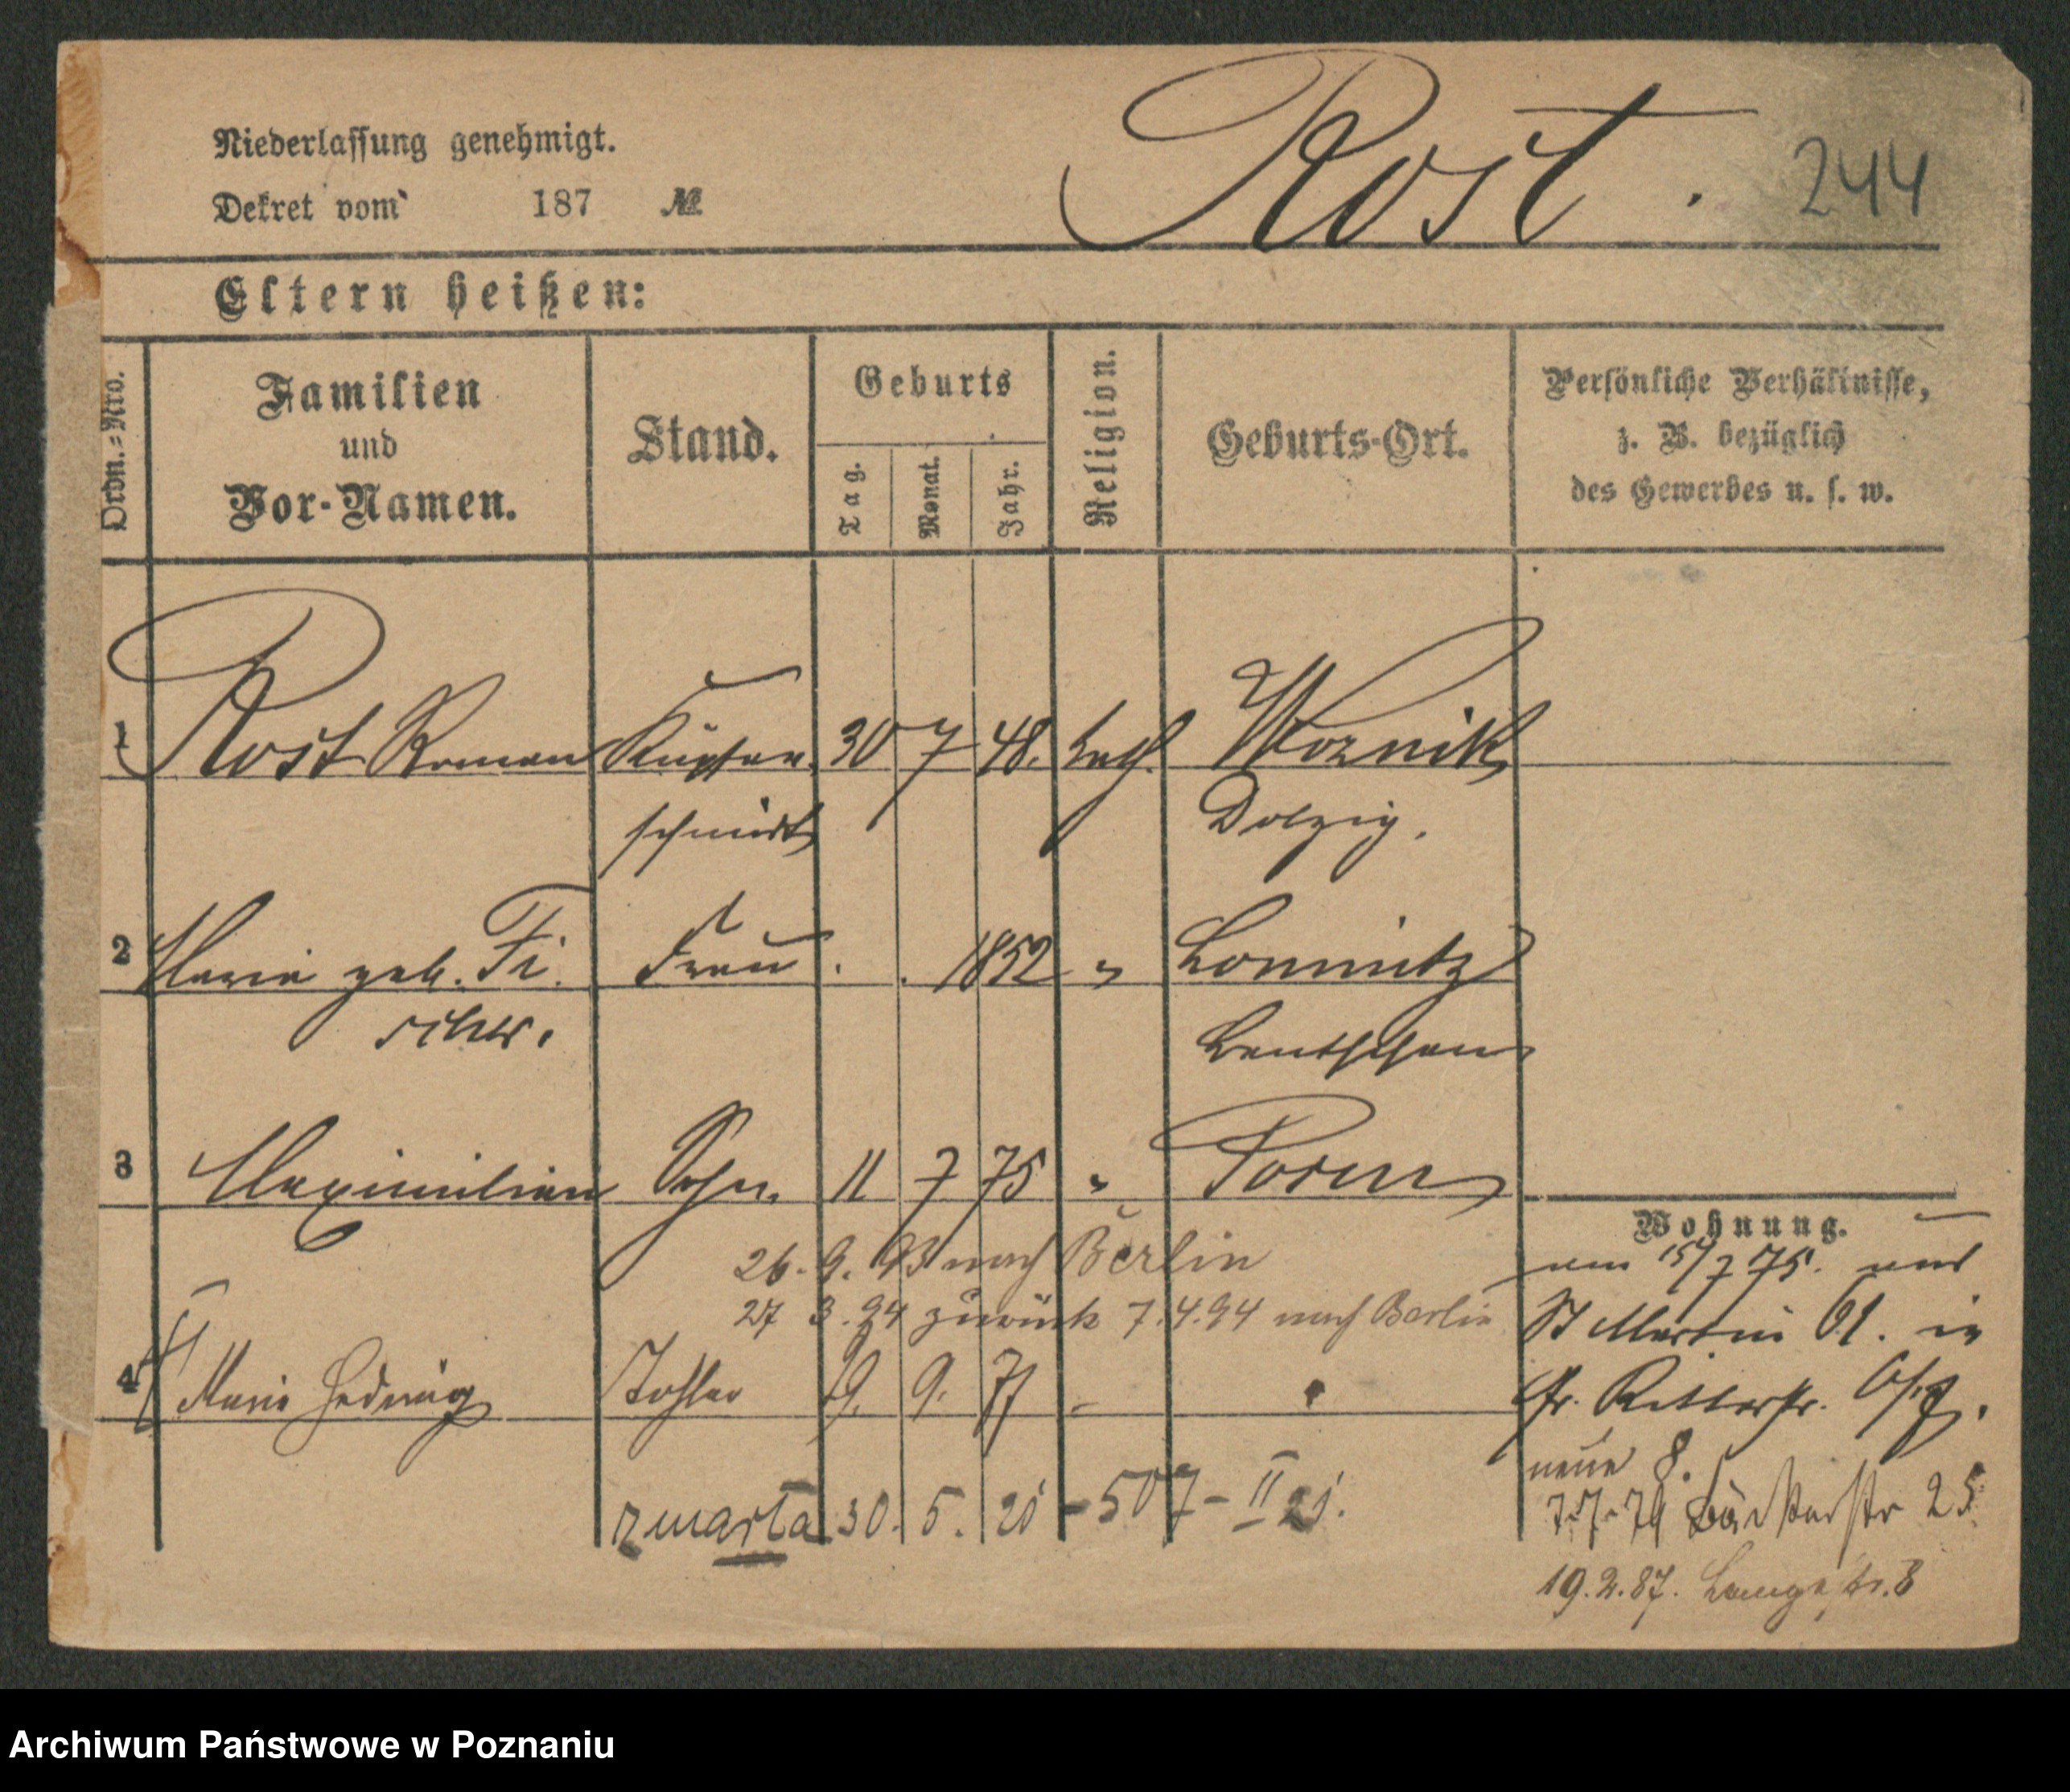 Niederlassung genehmigt.
Dekret vom 187 №
Rost. 244
Eltern heißen:
Ordn.-Nro. Familien und Vor-Namen. Stand. Geburts Tag. Monat. Jahr. Religion. Geburts-Ort. Persönliche Verhältnisse, z. B. bezüglich des Gewerbes u. s. w.
1 Rost Roman Kupfer 30 7 48. kath. Woznik
schmidt Dolzig.
2 Maria geb. Fi Frau 1852 " Lomnitz
scher. Bentschen
3 Maximilian Sohn 11 7 75 " Posen
Wohnung.
26. 9. 93 nach Berlin
27 3. 94 zurück 7.4.94 nach Berlin
von 15/7 75. und
St Martin 61. in
4 Marie Hedwig Tochter 19. 9. 77 -
gr. Ritterstr.
neue 8.
zmarła 30. 5. 21 - 507 - II 21.
7.7.79 Bäckerstr 25
19.2.87. Langestr. 3
Archiwum Państwowe w Poznaniu